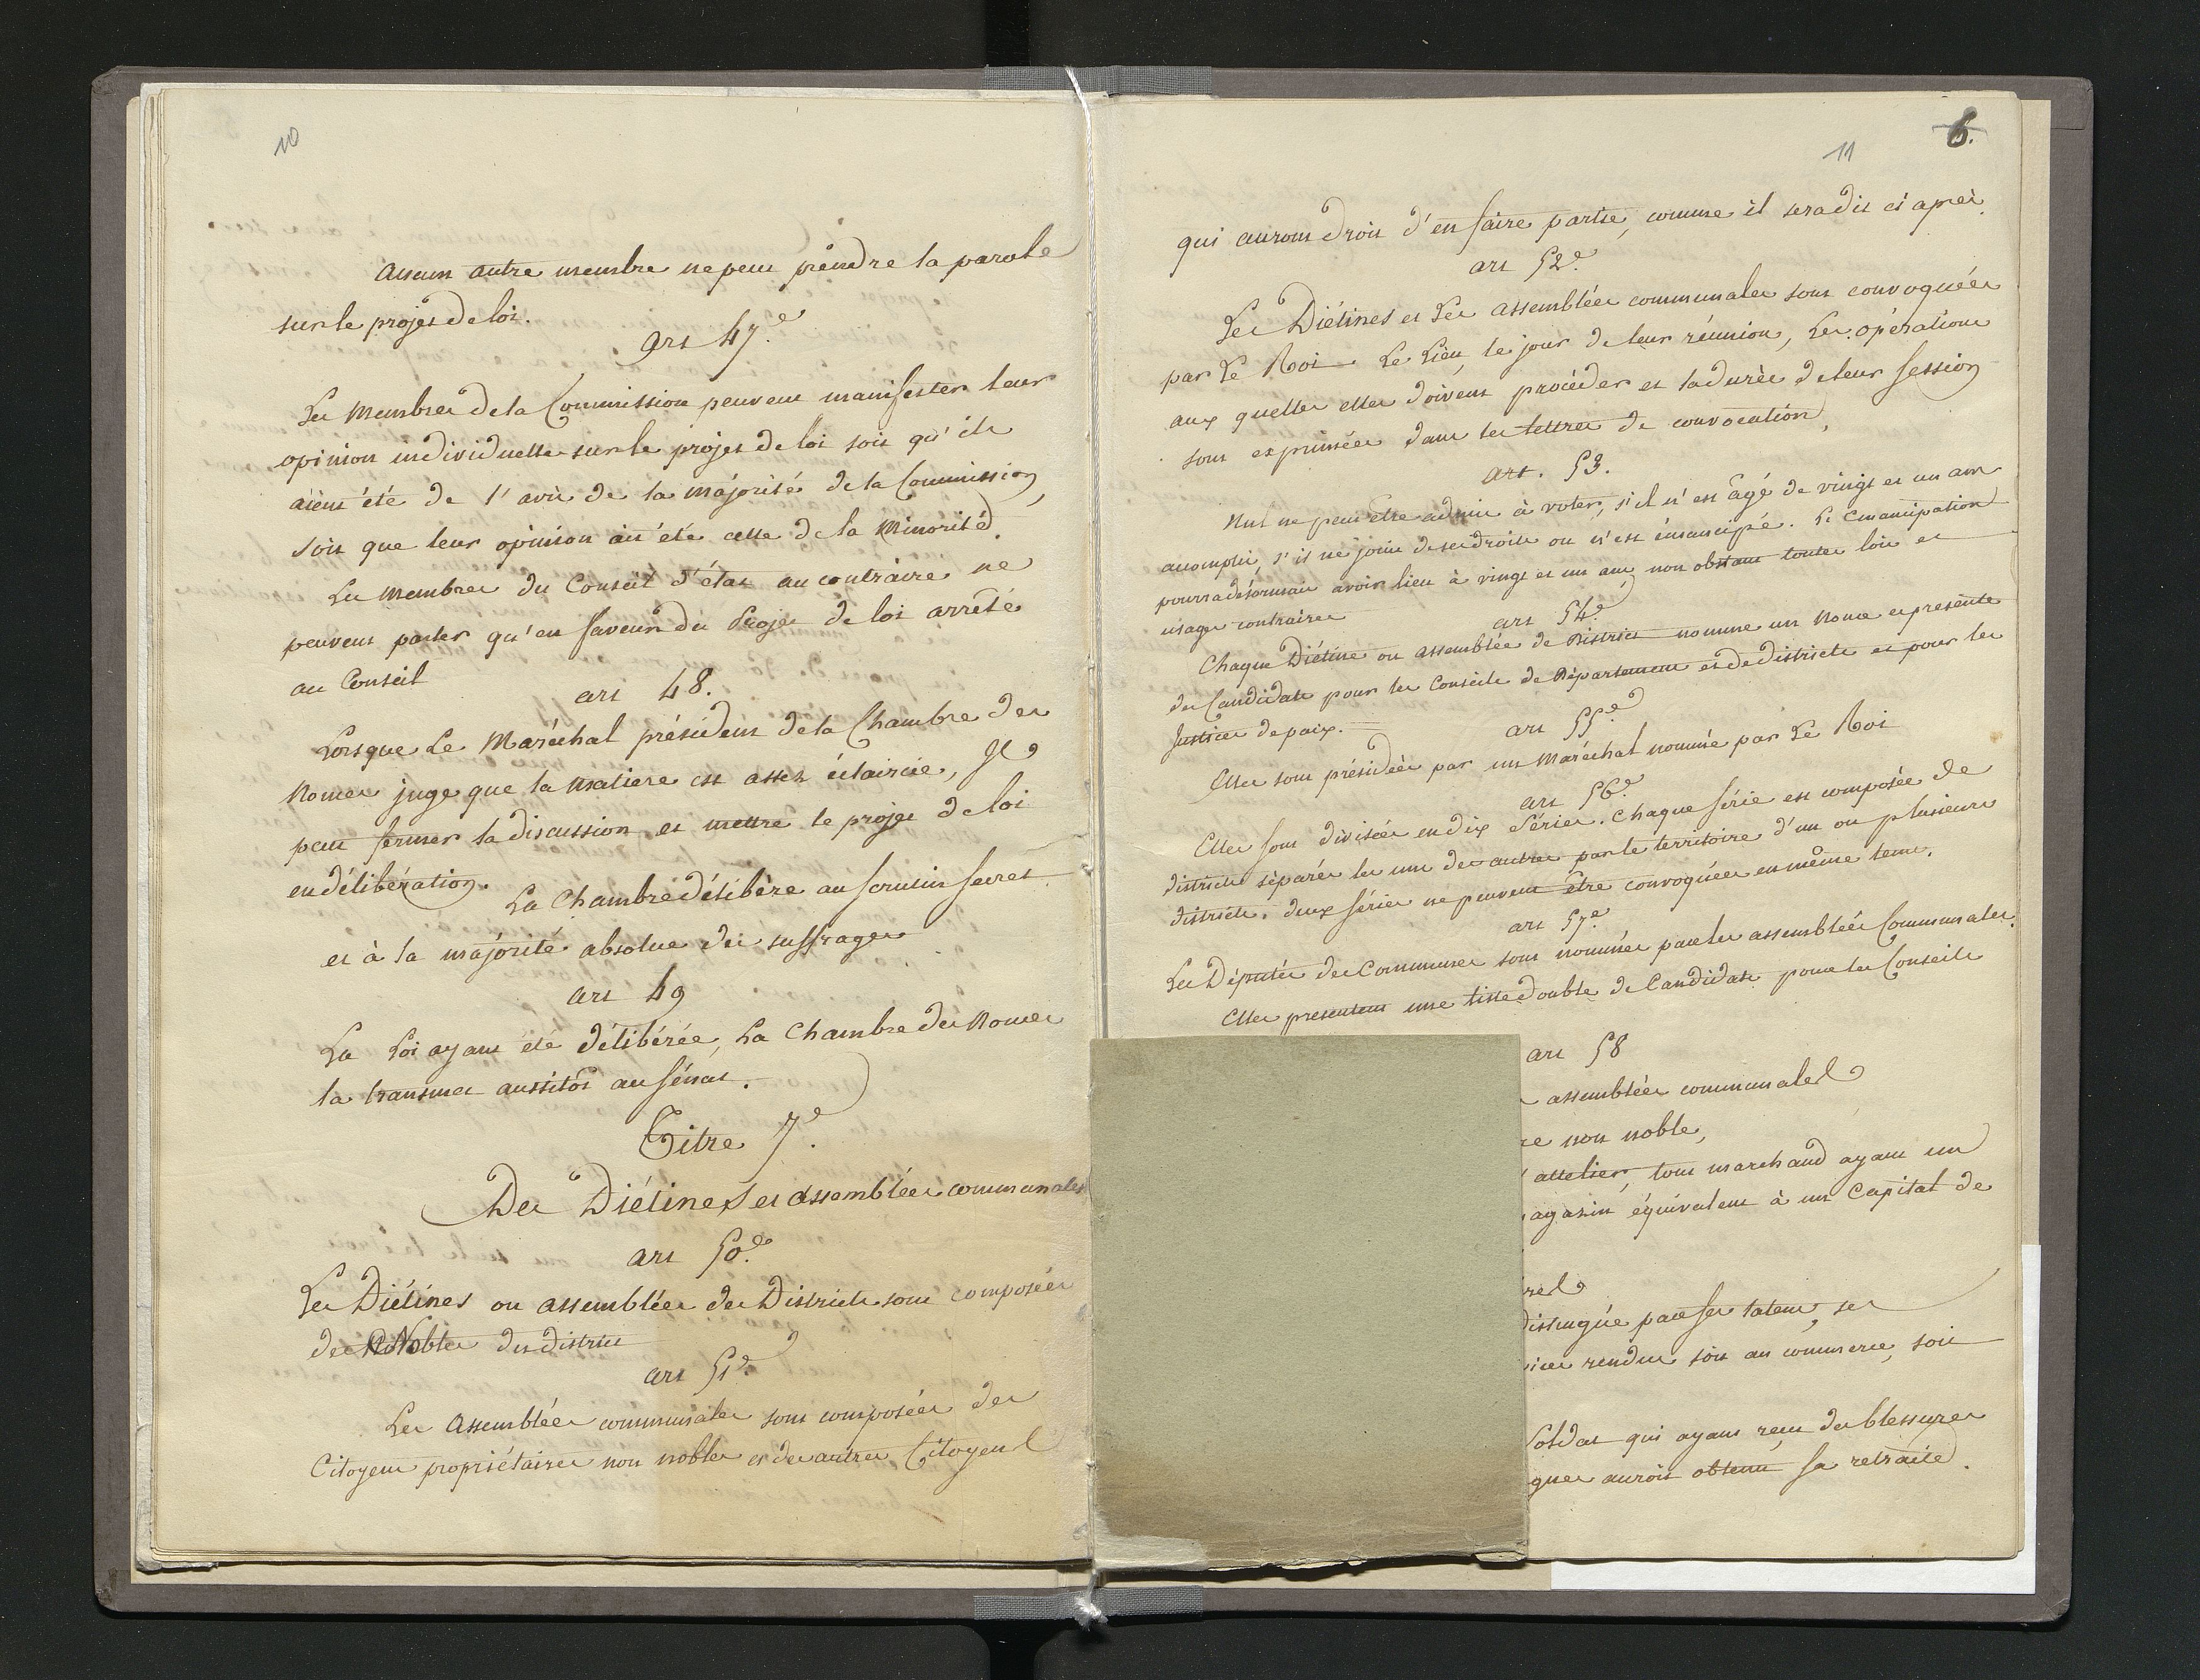 10
aucun autre membre ne peut prendre la parole
sur le projet de loi.
art 47.e
Les Membres de la Commission peuvent manifester leur
opinion individuelle sur le projet de loi soit qu'ils
aient été de l'avis de la majorité de la Commission,
soit que leur opinion ait été celle de la Minorité.
Les Membres du Conseil d'état au contraire ne
peuvent parler qu'en faveur du Projet de loi arrêté
au Conseil
art 48.
Lorsque Le Maréchal président de la Chambre des
Nonces juge que la matiere est assez éclaircie, Il
peut fermer la discussion et mettre le projet de loi
en délibération.
La Chambre délibère au scrutin secret
et à la majorité absolue des suffrages
art 49
La Loi ayant été délibérée, La Chambre des Nonces
la transmet aussitôt au Sénat.
Titre 7.e
Des Diétines et assemblées communales
art 50.e
Les Diétines ou assemblées des Districts sont composées
des Nobles du district
art 51.e
Les Assemblées communales sont composées des
Citoyens propriétaires non nobles et des autres Citoyens
11
6.
qui auront droit d'en faire partie, comme il sera dit ci après.
art 52.e
Les Diétines et Les assemblées communales sont convoquées
par Le Roi Le Lieu, le jour de leur réunion, Les opérations
aux quelles elles doivent procéder et la durée de leur session
sont exprimées dans les lettres de convocation,
art. 53.
Nul ne peut être admis à voter, s'il n'est âgé de vingt et un ans
accomplis, s'il ne jouit de ses droits ou n'est émancipé. L'Emancipation
pourra désormais avoir lieu à vingt et un ans, non obstant toutes lois et
usages contraires
art 54.e
Chaque Diétine ou assemblée de District nomme un Nonce et présente
des Candidats pour les Conseils de Département et de districts et pour les
Justices de paix.
art 55.e
Elles sont présidées par un Maréchal nommé par Le Roi
art 56.e
Elles sont divisées en dix Séries. Chaque série est composée de
districts séparés les uns des autres par le territoire d'un ou plusieurs
districts. deux séries ne peuvent être convoquées en même tems.
art 57.e
Les Députés des Communes sont nommés par les assemblées Communales.
Elles presentent une liste double de Candidats pour les Conseils
art 58
assemblées communales
re non noble,
attelier, tout marchand ayant un
agasin équivalent à un Capital de
res
distingué par ses talens, ses
ices rendus soit au commerce, soit
Soldat qui ayant reçu des blessures
gnes auroit obtenu sa retraite.